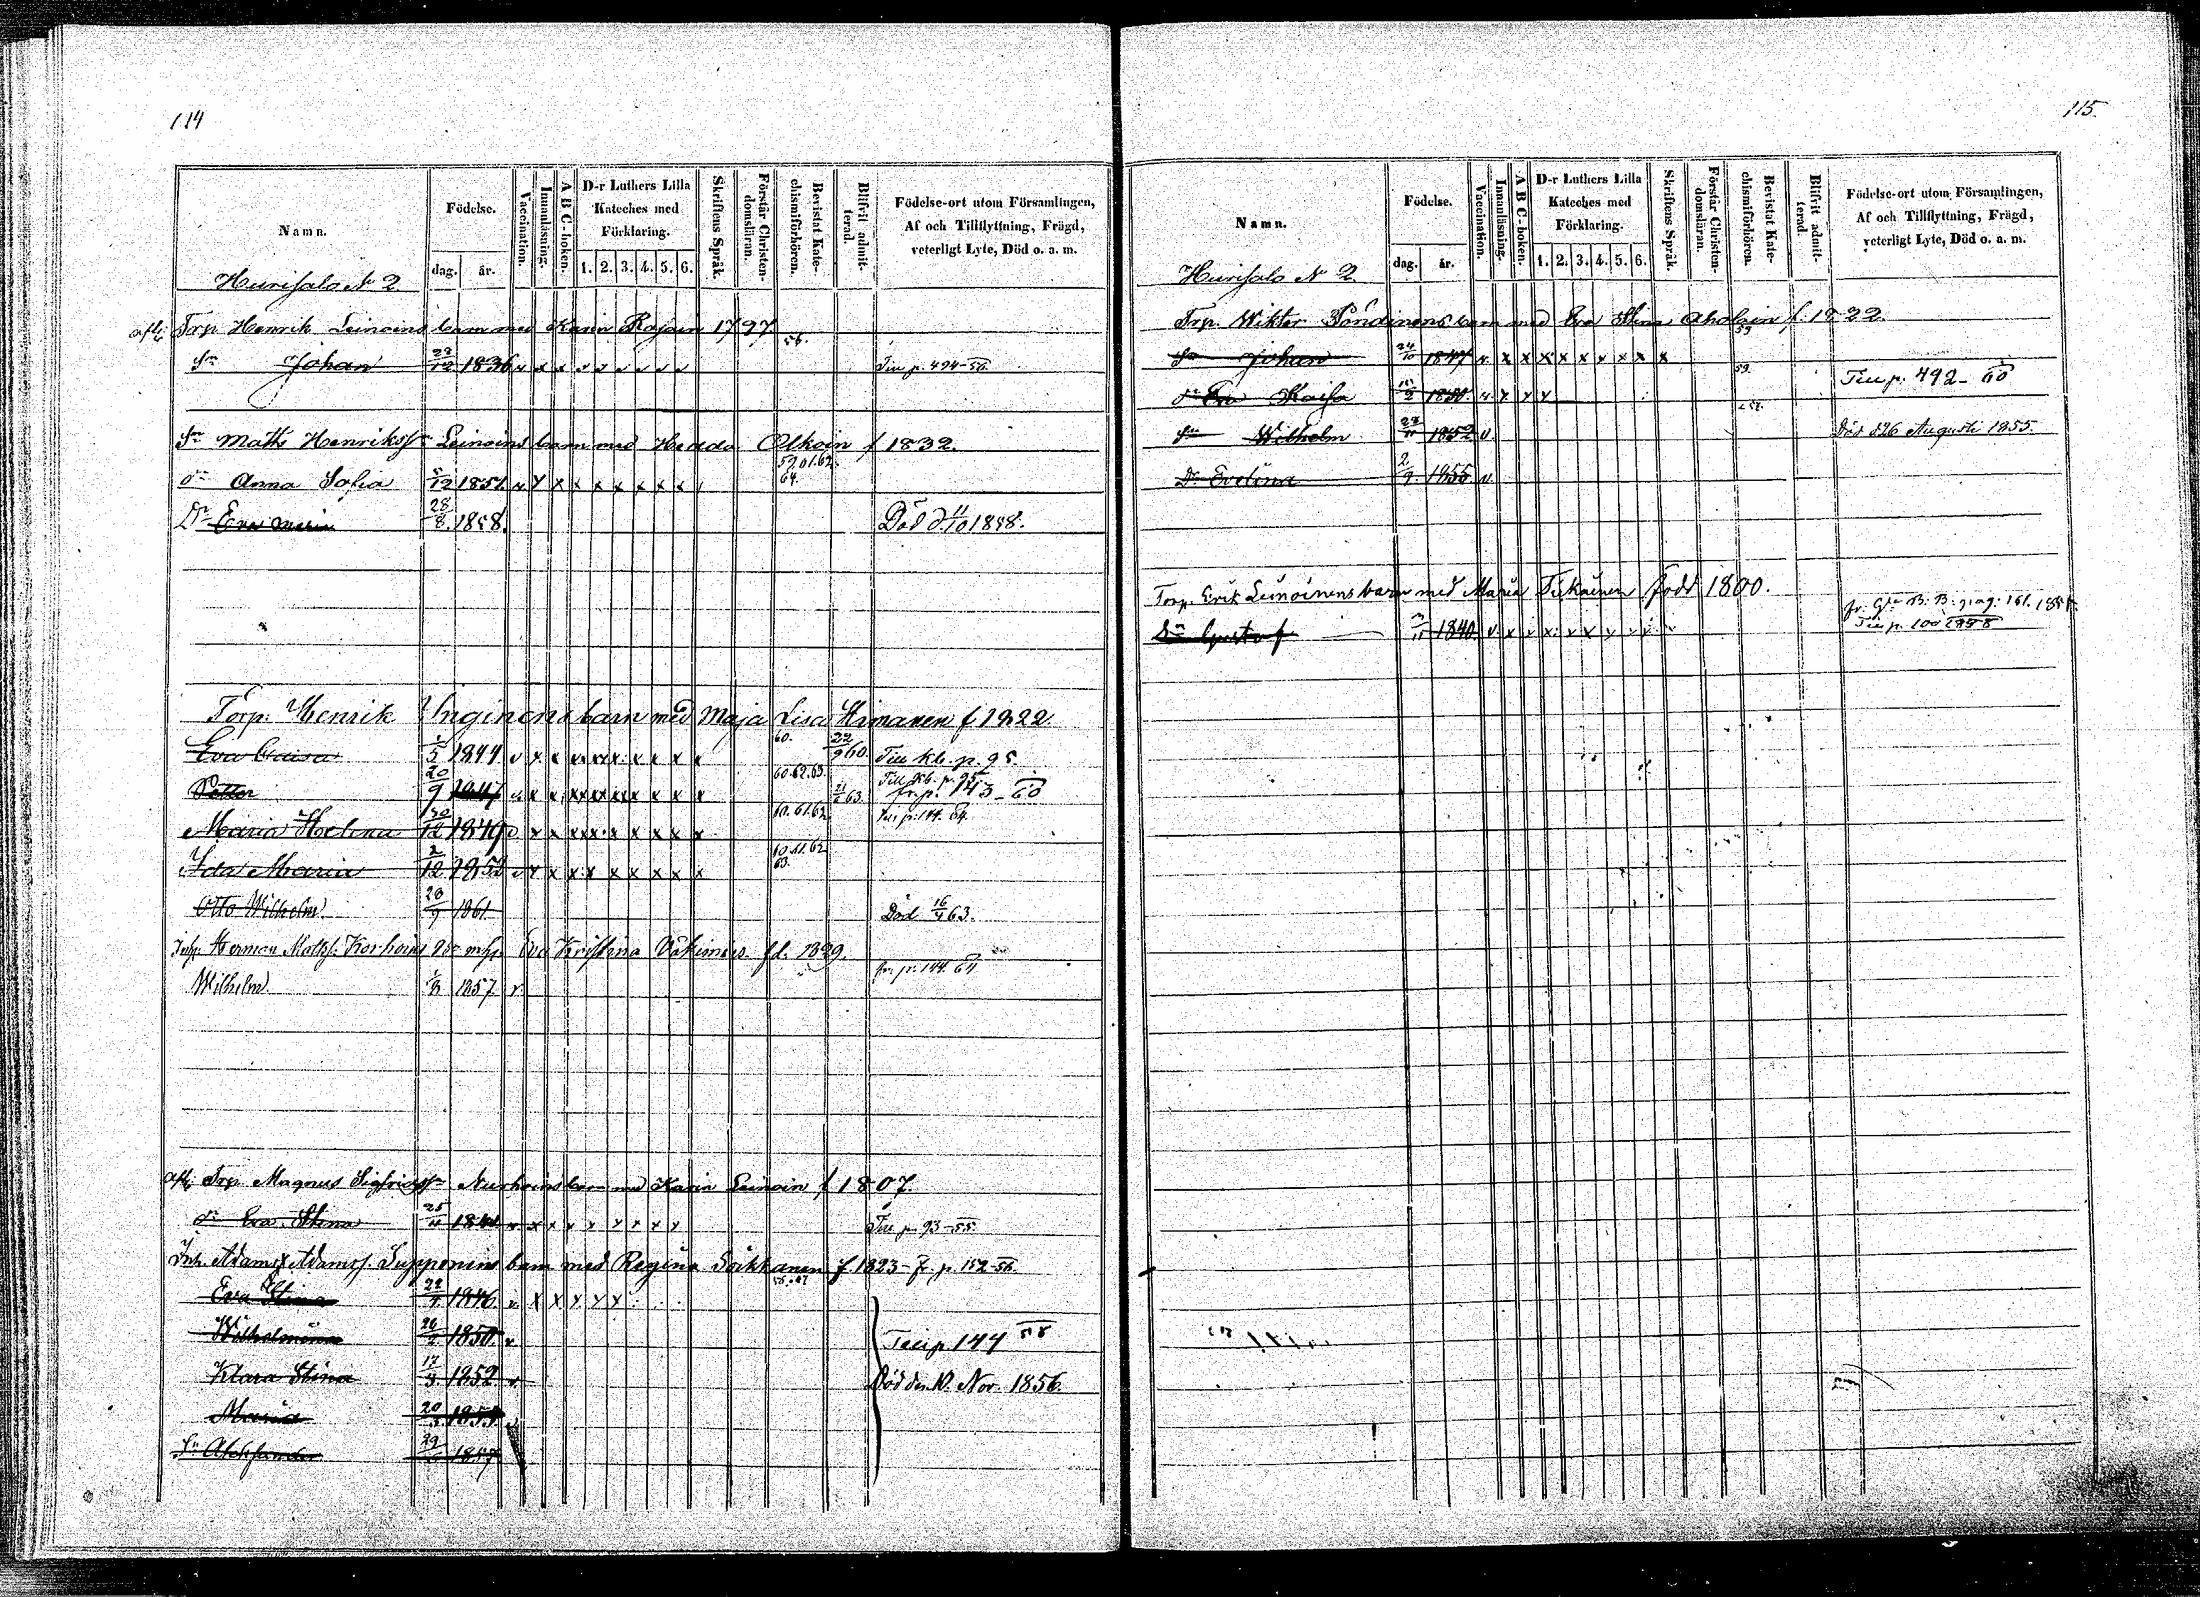 114
Namn.
Födelse.
dag. år.
Vaccination.
Innanläsning.
A B C-boken.
D-r Luthers Lilla Kateches med Förklaring.
1. 2. 3. 4. 5. 6.
Skriftens Språk.
Förstår Christendomsläran.
Bevistat Katechismiförhören.
Blifvit admitterad.
Födelse-ort utom Församlingen,
Af och Tillflyttning, Frägd,
veterligt Lyte, Död o. a. m.
Hurisalo N 2.
Trp Henrik Leinoins barn med Karin 1797.
Sn Johan 12 1836 56. p. 494-56
Sn Matts Henrikss Leinoins barn med Hedda Olkoin f 1832.
dr Anna Sofia 5/12 1851 59.61.62. 64.
Dr Eva Maria 28/8 1858. Död d. 11/10 1858.
Torp. Henrik Ynginens barn med Maja Lisa Himanen f 1822.
Eva Caisa 1/5 1844 60. 22/9 60. Till kb. p. 95.
Petter 20/9 1847 60.62.63. 63. Till kb. p. 95.
fr. p. 143-60
Maria Helena 30/12 1849 60.61.62. p. 144. 64.
Ida Maria 2/12 1852 60.61.62 63.
Otto Wilhelm 28/9 1861 Död 16/4 63.
Herman Matts. Korhoins Eva Kristina fd. 1829.
Wilhelm 1/3 1857 fr. p. 144. 64
Trp Magnus Sigfridss barn med Karin Leinoin f 1807.
dr Eva Stina 25 1841 p. 93-55.
Inh. Adam Adamss. Supponens barn med Regina Soikkanen f 1823 - fr. p. 152-56.
Eva Stina 22 1846 56.
Wilhelmina 26/2 1850. p. 144 58
Klara Stina 17/3 1852 Död den 10. Nov. 1856.
Maria 20
Sn Alexsander 29 1857
115.
Namn.
Födelse.
dag. år.
Vaccination.
Innanläsning.
A B C-boken.
D-r Luthers Lilla Kateches med Förklaring.
1. 2. 3. 4. 5. 6.
Skriftens Språk.
Förstår Christendomsläran.
Bevistat Katechismiförhören.
Blifvit admitterad.
Födelse-ort utom Församlingen,
Af och Tillflyttning, Frägd,
veterligt Lyte, Död o. a. m.
Hurisalo N 2.
Trp. Wikter Pöndinens barn med Eva Stina Aholain f. 1822.
Sn Johan 24/10 1847 59
dr Eva Kaisa /2 1850 59. p. 492-60
Sn Wilhelm 1852 Död d 26 Augusti 1855.
Dr Evelina 2/9 1855
Torp. Erik Leinoinens barn med Maria Tiikainen född 1800.
Sn Gustaf 1840 fr. B. B. pag: 161.
p. 100 1858